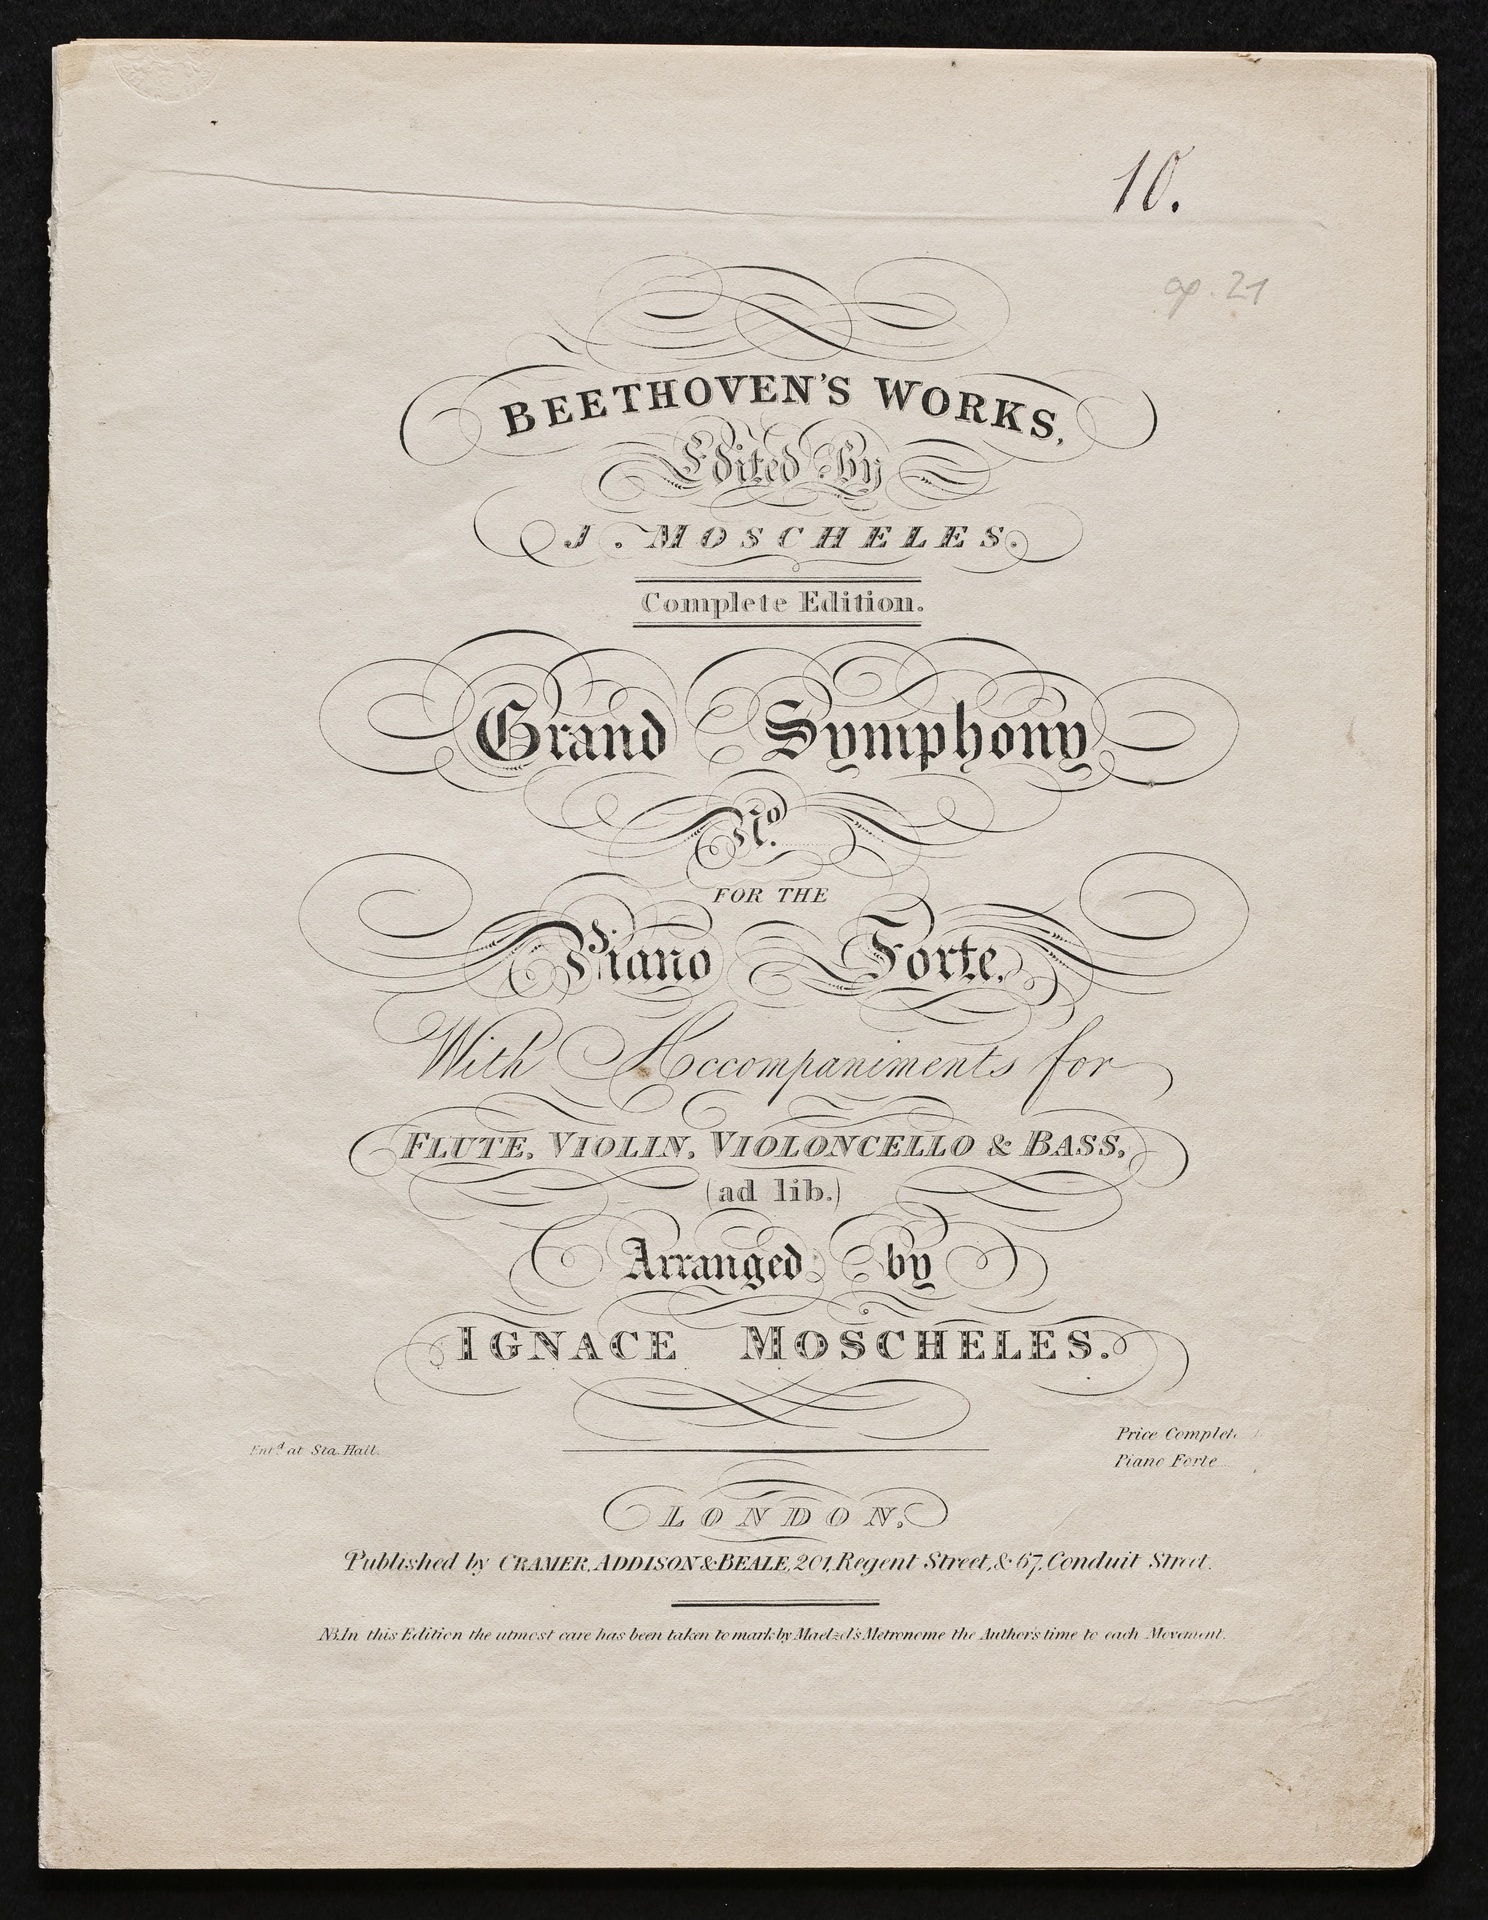 10.
op. 21
BEETHOVEN'S WORKS,
Edited By
J. MOSCHELES.
Complete Edition.
Grand Symphony
No.
FOR THE
Piano Forte,
With Accompaniments for
FLUTE, VIOLIN, VIOLONCELLO & BASS,
(ad lib.)
Arranged by
IGNACE MOSCHELES.
Entd. at Sta. Hall.
Price Complete
Piano Forte
LONDON,
Published by CRAMER, ADDISON & BEALE, 201, Regent Street, & 67, Conduit Street.
NB. In this Edition the utmost care has been taken to mark by Maelzel's Metronome the Author's time to each Movement.